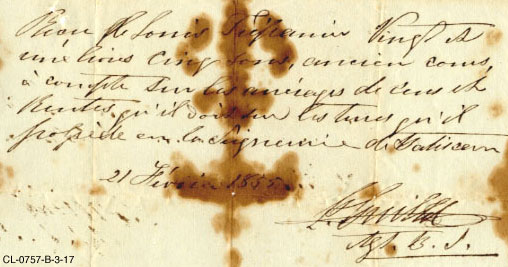 Recu de Louis Vingt et
une livres Cinq Sous, ancien cours,
à compte sur les arrérages de cens et
Rentes, qu'il doit sur les terres qu'il
possède en la Seigneurie de Batiscan
21 Février
Agt. B. J.
CL-0757-B-3-17